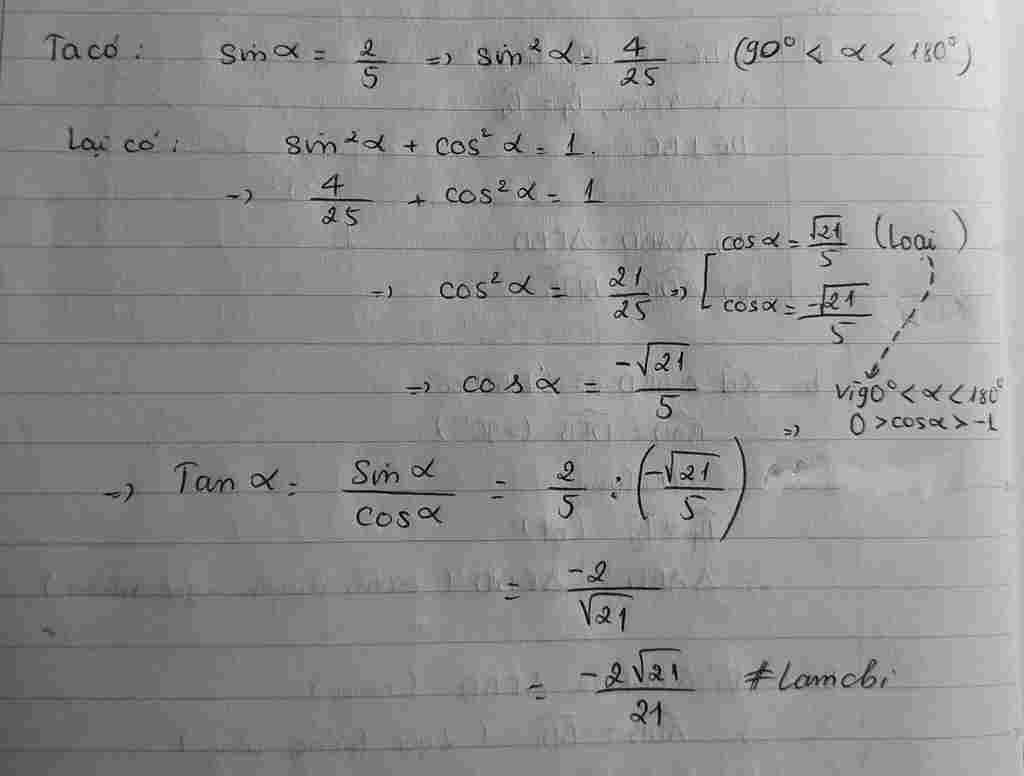 Ta có: sin α = 2/5 => sin²α = 4/25 (90° < α < 180°)
Lại có: sin²α + cos²α = 1.
=> 4/25 + cos²α = 1
=> cos²α = 21/25 => [ cosα = √21/5 (Loại)
cosα = -√21/5
=> cos α = -√21/5
vì 90° < α < 180°
=> 0 > cosα > -1
=> Tan α = Sin α / cos α = 2/5 : (-√21/5)
= -2/√21
= -2√21/21 #Lamcbi